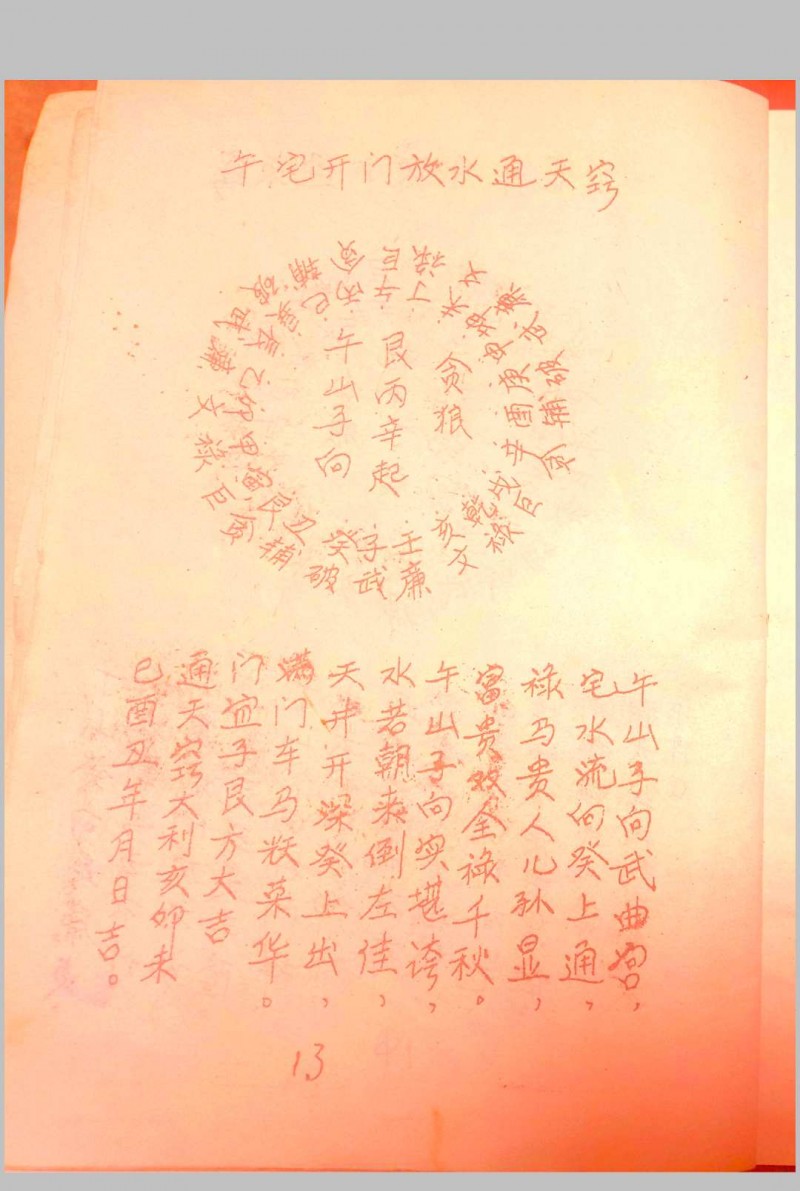 午宅开门放水通天窍
贪狼
艮丙辛起
午山子向
巳丙午丁未坤申庚酉辛戌乾亥壬子癸丑艮寅甲卯乙辰巽
辅贪巨禄文廉武破辅贪巨禄文廉武破辅贪巨禄文廉武破
午山子向武曲宫，
宅水流向癸上通，
禄马贵人儿孙显，
富贵双全禄千秋。
午山子向实堪誇，
水若朝来倒左佳，
天井开深癸上出，
满门车马妷菓华。
门宜子艮方大吉
通天窍大利亥卯未
巳酉丑年月日吉。
13